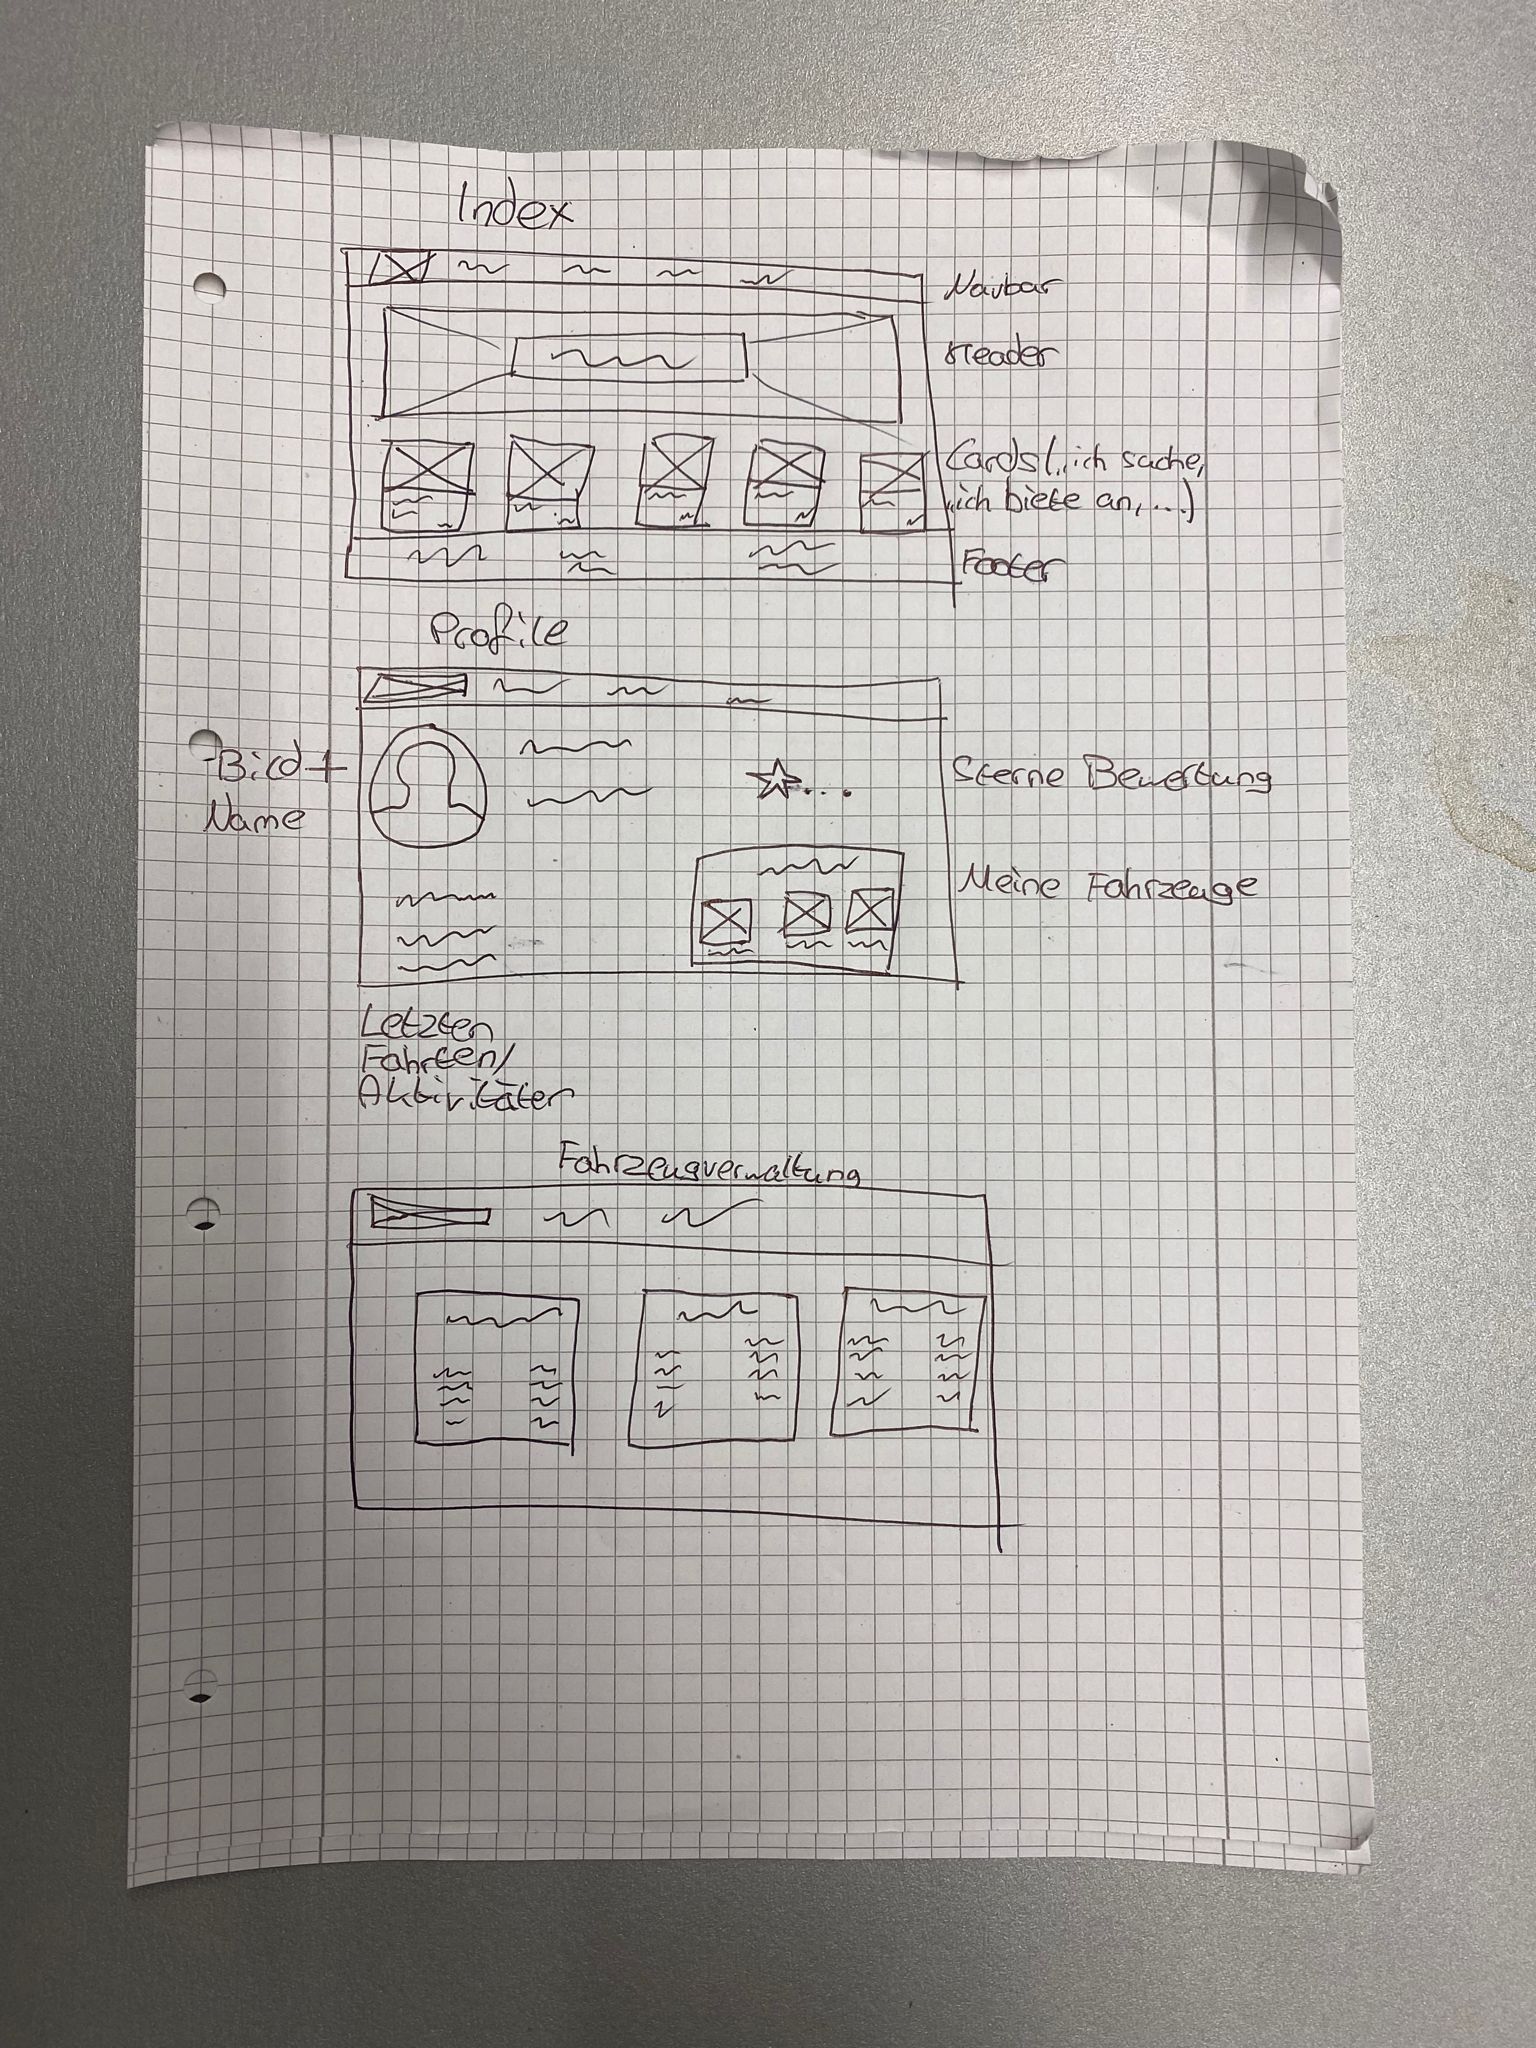 Index
Navbar
Header
Cards("ich suche,
"ich biete an, ...)
Footer
Profile
Bild +
Name
Sterne Bewertung
Meine Fahrzeuge
Letzten
Fahrten/
Aktivitäten
Fahrzeugverwaltung